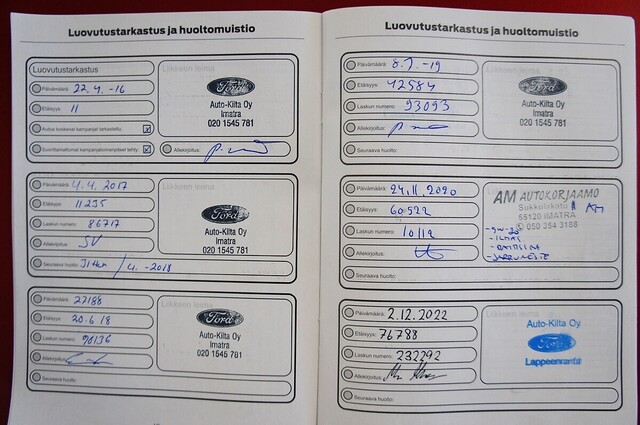 Luovutustarkastus ja huoltomuistio
Luovutustarkastus
Liikkeen leima
Päivämäärä: 22.4.-16
Etäisyys: 11
Autoa koskevat kampanjat tarkastettu
Suorittamattomat kampanjatoimenpiteet tehty
Allekirjoitus:
Ford
Auto-Kilta Oy
Imatra
020 1545 781
Päivämäärä: 4.4.2017
Etäisyys: 11235
Laskun numero: 86717
Allekirjoitus: SV
Seuraava huolto: /4.-2018
Ford
Auto-Kilta Oy
Imatra
020 1545 781
Päivämäärä: 27188
Etäisyys: 20.6.18
Laskun numero: 90136
Allekirjoitus:
Seuraava huolto:
Ford
Auto-Kilta Oy
Imatra
020 1545 781
Luovutustarkastus ja huoltomuistio
Päivämäärä: -19
Etäisyys: 42584
Laskun numero: 93093
Allekirjoitus:
Seuraava huolto:
Liikkeen leima
Ford
Auto-Kilta Oy
Imatra
020 1545 781
Päivämäärä: 24.11.2020
Etäisyys: 60522
Laskun numero: 10112
Allekirjoitus:
Seuraava huolto:
AM AUTOKORJAAMO
Sukkulakatu
55120 IMATRA
050 354 3188
Päivämäärä: 2.12.2022
Etäisyys: 76788
Laskun numero: 232292
Allekirjoitus:
Seuraava huolto:
Auto-Kilta Oy
Ford
Lappeenranta